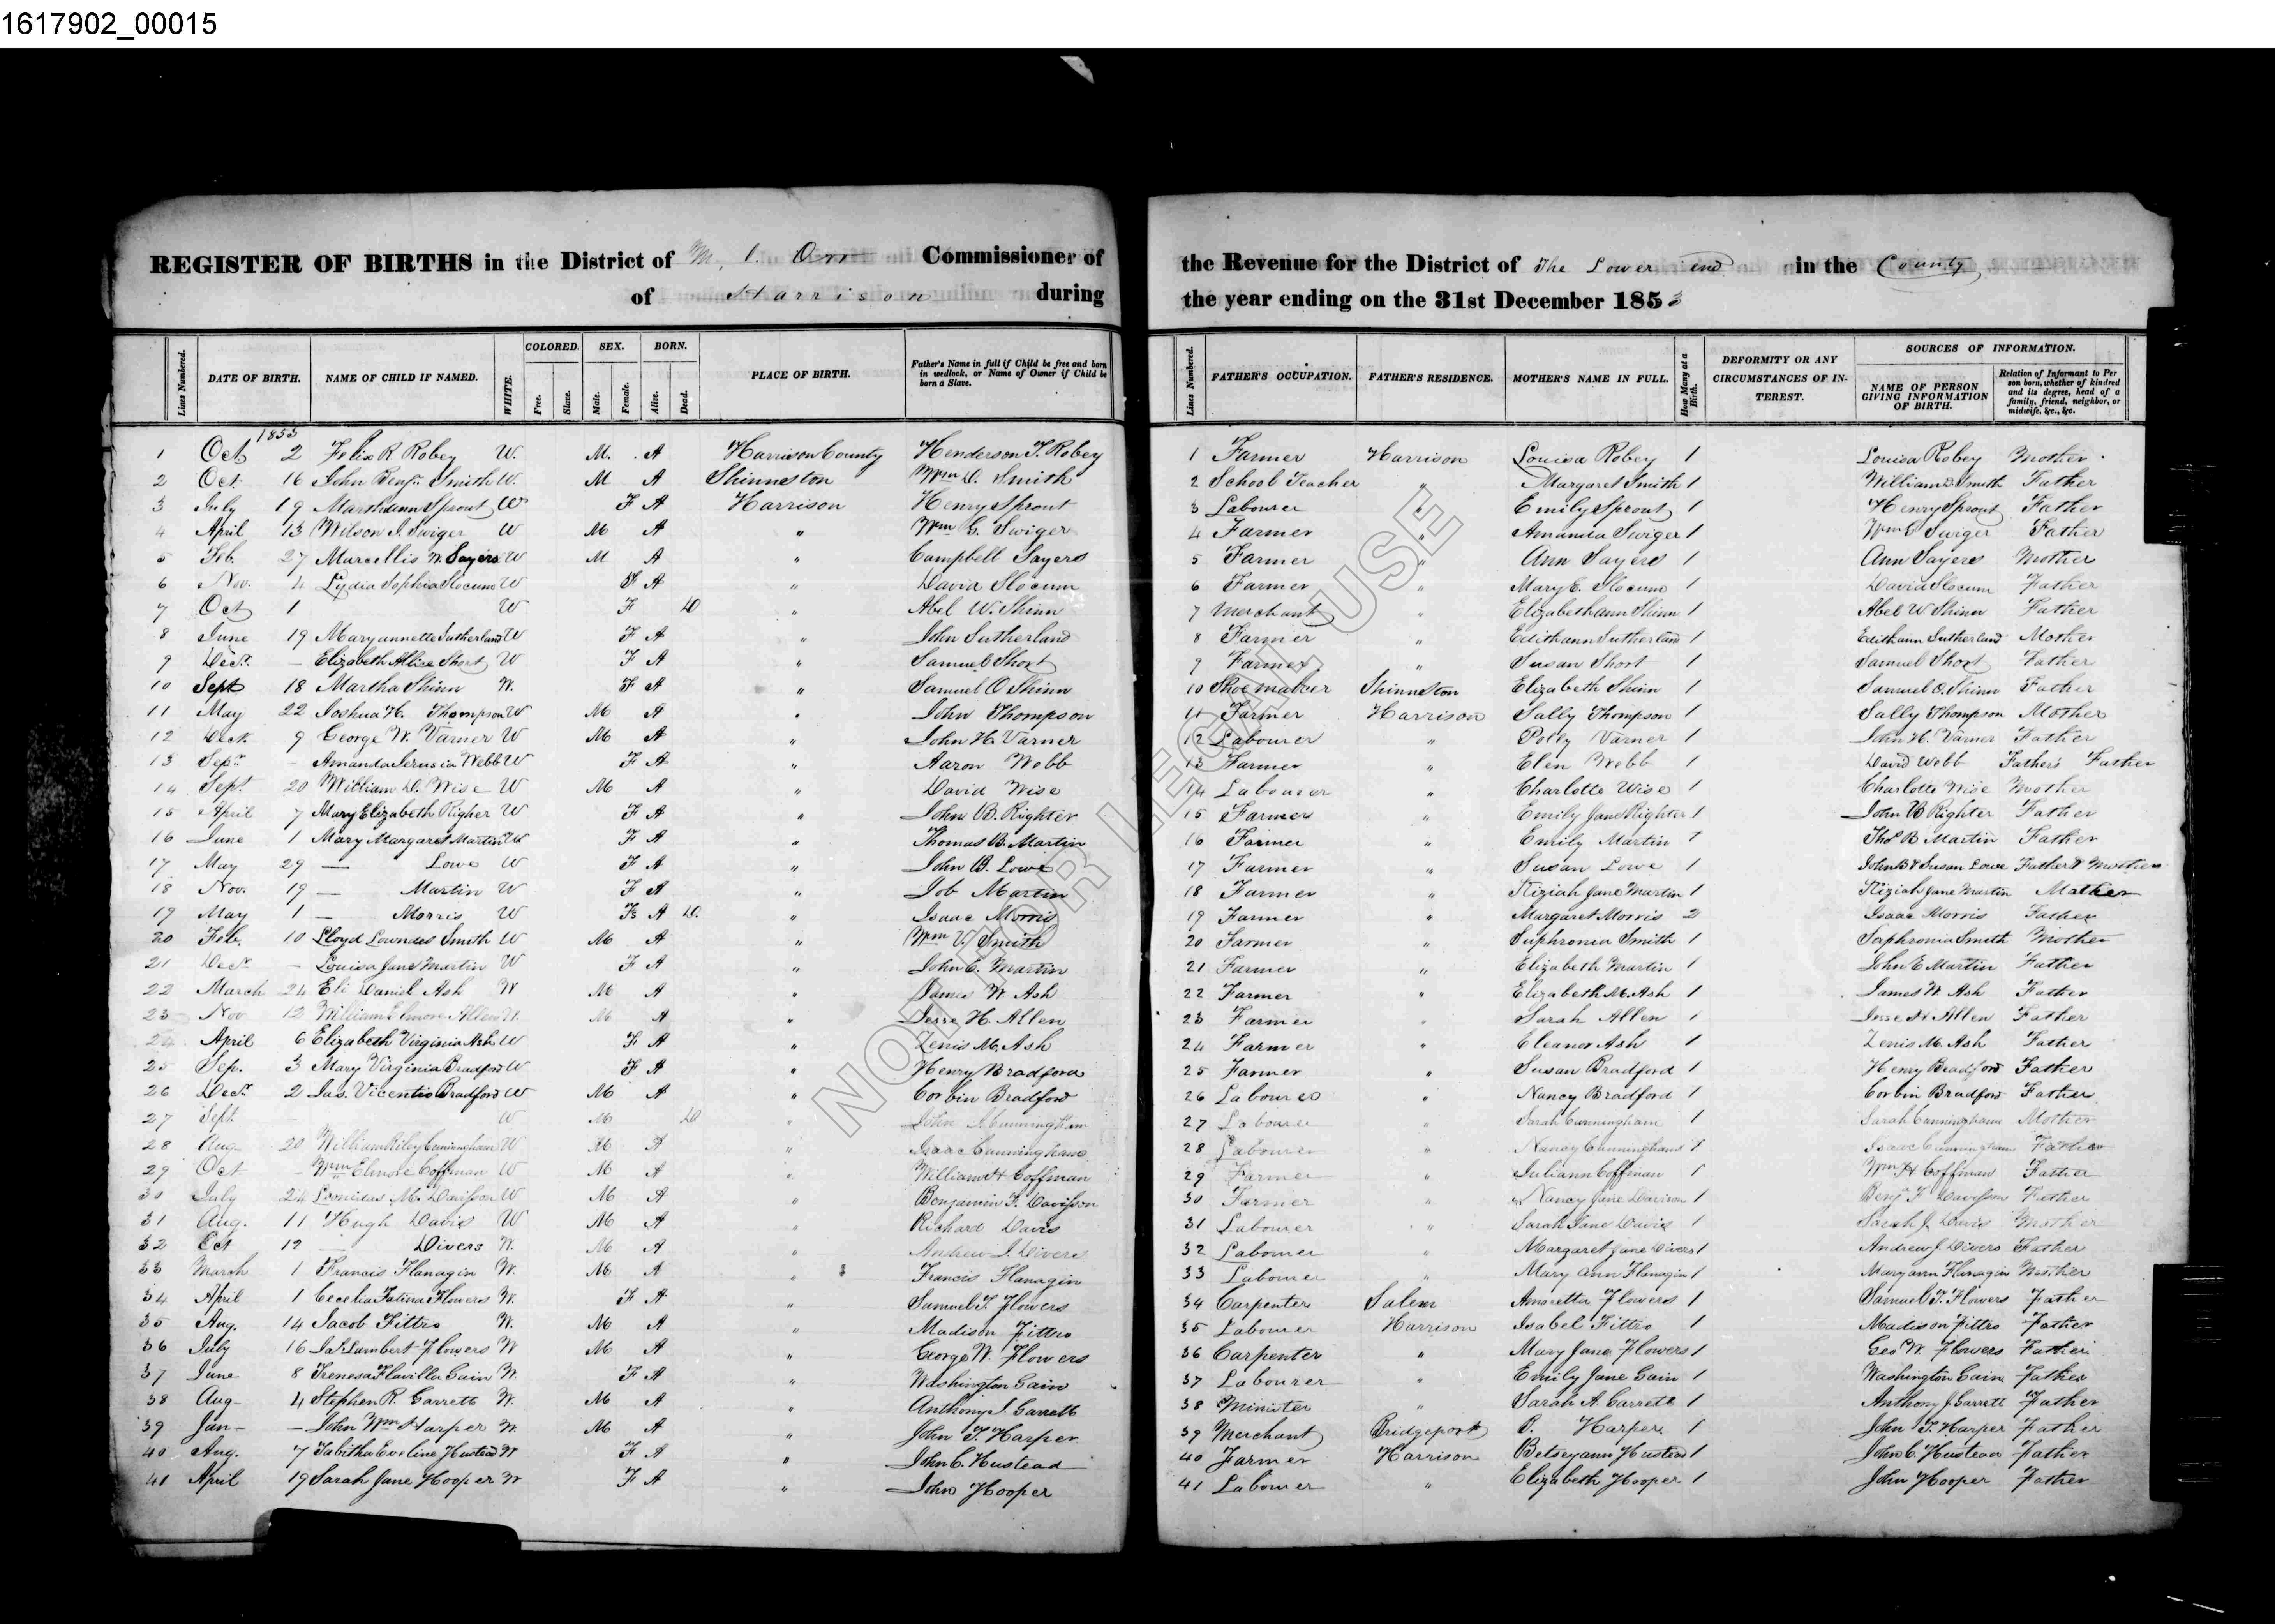 1617902_00015
REGISTER OF BIRTHS in the District of M. Commissioner of
of Harrison during
the Revenue for the District of The Lower End in the County
the year ending on the 31st December 1853
Lines Numbered. DATE OF BIRTH. NAME OF CHILD IF NAMED. WHITE. COLORED. Free. Slave. SEX. Male. Female. BORN. Alive. Dead. PLACE OF BIRTH. Father's Name in full if Child be free and born in wedlock, or Name of Owner if Child be born a Slave.
Lines Numbered. FATHER'S OCCUPATION. FATHER'S RESIDENCE. MOTHER'S NAME IN FULL. How Many at a Birth. DEFORMITY OR ANY CIRCUMSTANCES OF INTEREST. SOURCES OF INFORMATION. NAME OF PERSON GIVING INFORMATION OF BIRTH. Relation of Informant to Person born, whether of kindred and its degree, head of a family, friend, neighbor, or midwife, &c., &c.
1853
1 Oct 2 Felix R Robey W. M. A Harrison County Henderson F. Robey 1 Farmer Harrison Louisa Robey 1 Louisa Robey Mother
2 Oct. 16 John Benjn Smith W. M A Shinnston Wm D. Smith 2 School Teacher " Margaret Smith 1 William D Smith Father
3 July 19 Marthann Sprout W F A Harrison Henry Sprout 3 Labourer " Emily Sprout 1 Henry Sprout Father
4 April 13 Wilson I. Swiger W M A " Wm G. Swiger 4 Farmer " Amanda Swiger 1 Wm G Swiger Father
5 Feb. 27 Marcellis W. Sayers W M A " Campbell Sayers 5 Farmer " Ann Sayers 1 Ann Sayers Mother
6 Nov. 4 Lydia Sophia Slocum W F A " David Slocum 6 Farmer " Mary E. Slocum 1 David Slocum Father
7 Oct 1 W F D " Abel W. Shinn 7 Merchant " Elizabeth Ann Shinn 1 Abel W Shinn Father
8 June 19 Maryannette Sutherland W F A " John Sutherland 8 Farmer " Edithann Sutherland 1 Edithann Sutherland Mother
9 Decr. — Elizabeth Allice Short W F A " Samuel Short 9 Farmer " Susan Short 1 Samuel Short Father
10 Sept 18 Martha Shinn W. F A " Samuel O Shinn 10 Shoemaker Shinnston Elizabeth Shinn 1 Samuel O. Shinn Father
11 May 22 Joshua H. Thompson W M A " John Thompson 11 Farmer Harrison Sally Thompson 1 Sally Thompson Mother
12 Decr. 9 George W. Varner W M A " John H. Varner 12 Labourer " Polly Varner 1 John H. Varner Father
13 Sepr. — Amanda Webb W F A " Aaron Webb 13 Farmer " Elen Webb 1 David Webb Father's Father
14 Sept. 20 William D. Wise W M A " David Wise 14 Labourer " Charlotte Wise 1 Charlotte Wise Mother
15 April 7 Mary Elizabeth Righer W F A " John B. Righter 15 Farmer " Emily Jane Righter 1 John B Righter Father
16 June 1 Mary Margaret Martin W F A " Thomas B. Martin 16 Farmer " Emily Martin 1 Thos B Martin Father
17 May 29 — Lowe W F A " John B. Lowe 17 Farmer " Susan Lowe 1 John B & Susan Lowe Father & Mother
18 Nov. 19 — Martin W F A " Job Martin 18 Farmer " Kiziah Jane Martin 1 Kiziah Jane Martin Mother
19 May 1 — Morris W F A D. " Isaac Morris 19 Farmer " Margaret Morris 2 Isaac Morris Father
20 Feb. 10 Lloyd Lowndes Smith W M A " Wm V. Smith 20 Farmer " Suphronia Smith 1 Saphronia Smith Mother
21 Decr. — Louisa Jane Martin W F A " John E. Martin 21 Farmer " Elizabeth Martin 1 John E Martin Father
22 March 24 Eli Daniel Ash W M A " James W. Ash 22 Farmer " Elizabeth M. Ash 1 James W. Ash Father
23 Nov 12 William Elmore Allen W. M A " Jesse H. Allen 23 Farmer " Sarah Allen 1 Jesse H. Allen Father
24 April 6 Elizabeth Virginia Ash W F A " Zenis M. Ash 24 Farmer " Eleanor Ash 1 Zenis M. Ash Father
25 Sep. 3 Mary Virginia Bradford W F A " Henry Bradford 25 Farmer " Susan Bradford 1 Henry Bradford Father
26 Decr. 2 Jas. Vicentio Bradford W M A " Corbin Bradford 26 Labourer " Nancy Bradford 1 Corbin Bradford Father
27 Sept. W M D " John Cunningham 27 Labourer " Sarah Cunningham 1 Sarah Cunningham Mother
28 Aug 20 William Riley Cunningham W M A " Isaac Cunningham 28 Labourer " Nancy Cunningham 1 Isaac Cunningham Father
29 Oct — Wm Elmore Coffman W M A " William H Coffman 29 Farmer " Juliann Coffman 1 Wm H. Coffman Father
30 July 24 Leonidas M. Davisson W M A " Benjamin F. Davisson 30 Farmer " Nancy Jane Davison 1 Benj. F Davisson Father
31 Aug. 11 Hugh Davis W M A " Richard Davis 31 Labourer " Sarah Jane Davis 1 Sarah J. Davis Mother
32 Oct 12 — Divers W. M A " Andrew J. Divers 32 Labourer " Margaret Jane Divers 1 Andrew J Divers Father
33 March 1 Francis Flanagin W. M A " Francis Flanagin 33 Labourer " Mary Ann Flanagin 1 Maryann Flanagin Mother
34 April 1 Cecelia Flowers W. F A " Samuel T. Flowers 34 Carpenter Salem Amoretta Flowers 1 Samuel T. Flowers Father
35 Aug. 14 Jacob Fittro W. M A " Madison Fittro 35 Labourer Harrison Isabel Fittro 1 Madison Fittro Father
36 July 16 Jas Lambert Flowers W M A " George W. Flowers 36 Carpenter " Mary Jane Flowers 1 Geo W. Flowers Father
37 June 8 Flavilla Gain W. F A " Washington Gain 37 Labourer " Emily Jane Gain 1 Washington Gain Father
38 Aug 4 Stephen R. Garrett W. M A " Anthony J. Garrett 38 Minister " Sarah A. Garrett 1 Anthony J. Garrett Father
39 Jan — — John Wm Harper W. M A " John T. Harper 39 Merchant Bridgeport B. Harper 1 John T. Harper Father
40 Aug. 7 Tabitha Eveline Hustead W F A " John C. Hustead 40 Farmer Harrison Betseyann Hustead 1 John C. Hustead Father
41 April 19 Sarah Jane Hooper W F A " John Hooper 41 Labourer " Elizabeth Hooper 1 John Hooper Father
NOT FOR LEGAL USE